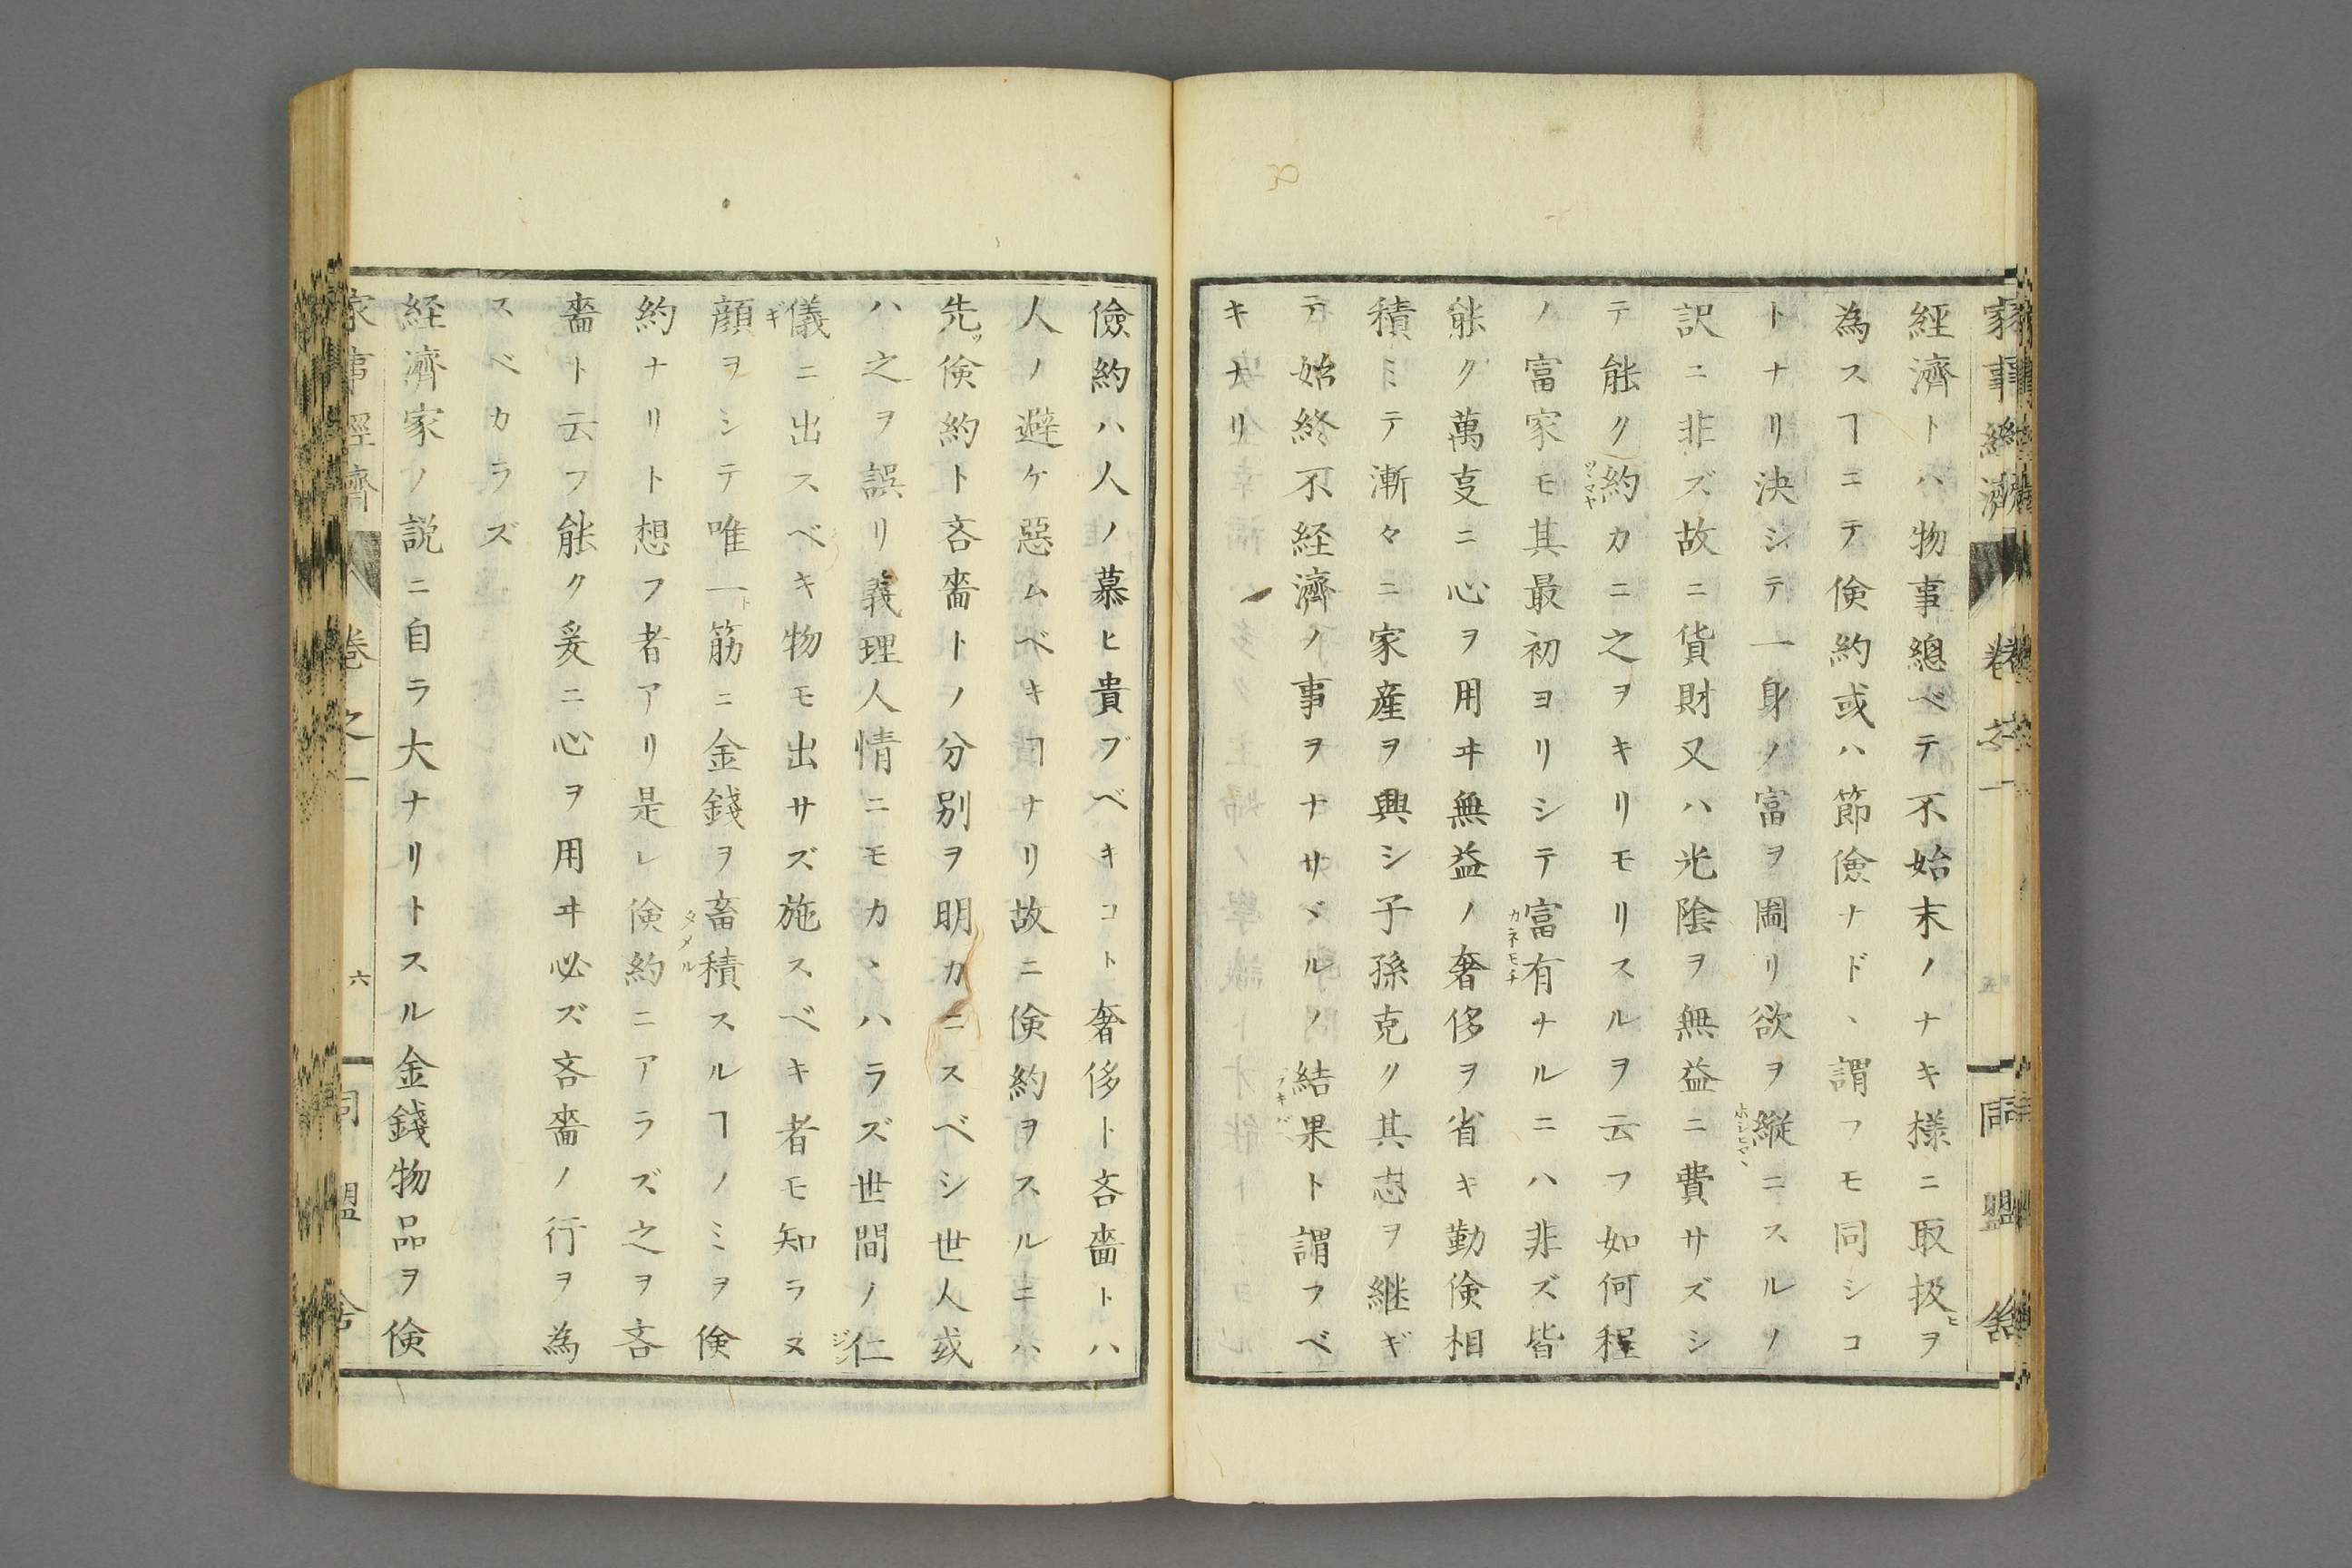 家事經濟 卷之一 同盟舎
經濟トハ物事總ベテ不始末ノナキ様ニ取扱ヒヲ
為スヿニテ倹約或ハ節儉ナド、謂フモ同シコ
トナリ決シテ一身ノ富ヲ圖リ欲ヲ縦ニスルノ
訳ニ非ズ故ニ貨財又ハ光陰ヲ無益ニ費サズシ
テ能ク約カニ之ヲキリモリスルヲ云フ如何程
ノ富家モ其最初ヨリシテ富有ナルニハ非ズ皆
能ク萬叓ニ心ヲ用ヰ無益ノ奢侈ヲ省キ勤倹相
積ミテ漸々ニ家産ヲ興シ子孫克ク其志ヲ継ギ
テ始終不経濟ノ事ヲナサヾルノ結果ト謂フベ
キナリ
儉約ハ人ノ慕ヒ貴ブベキコト奢侈ト吝嗇トハ
人ノ避ケ惡ムベキヿナリ故ニ倹約ヲスルニハ
先ッ倹約ト吝嗇トノ分別ヲ明カニスベシ世人或
ハ之ヲ誤リ義理人情ニモカヽハラズ世間ノ仁
儀ニ出スベキ物モ出サズ施スベキ者モ知ラヌ
顔ヲシテ唯一ト筋ニ金錢ヲ畜積スルヿノミヲ倹
約ナリト想フ者アリ是レ倹約ニアラズ之ヲ吝
嗇ト云フ能ク爰ニ心ヲ用ヰ必ズ吝嗇ノ行ヲ為
スベカラズ
経濟家ノ説ニ自ラ大ナリトスル金錢物品ヲ倹
家事經濟 卷之一 六 同盟舎